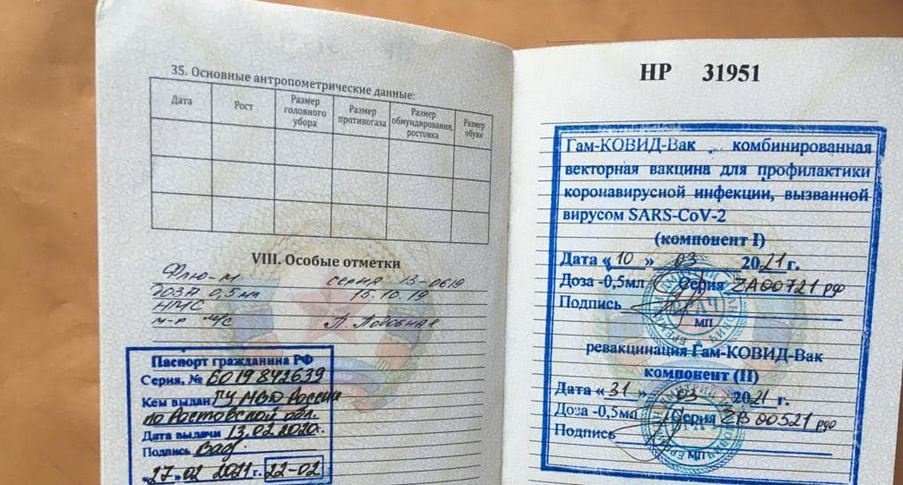 35. Основные антропометрические данные:
Дата Рост Размер головного убора Размер противогаза Размер обмундирования, ростовка Размер обуви
VIII. Особые отметки
Флю-М серия 13-0619
доза 0,5мл 15.10.19
НМС
м-р м/с
Паспорт гражданина РФ
Серия, № 6019842639
Кем выдан ГУ МВД России
по Ростовской обл.
Дата выдачи 13.02.2020г.
Подпись
«27» 02 2021 г. 22-02
НР 31951
Гам-КОВИД-Вак комбинированная
векторная вакцина для профилактики
коронавирусной инфекции, вызванной
вирусом SARS-CoV-2
(компонент I)
Дата «10» 03 2021 г.
Доза -0,5мл Серия ZA00721 рдф
Подпись
МП
ревакцинация Гам-КОВИД-Вак
компонент (II)
Дата «31» 03 2021 г.
Доза -0,5мл Серия ZB00521 рдф
Подпись
МП